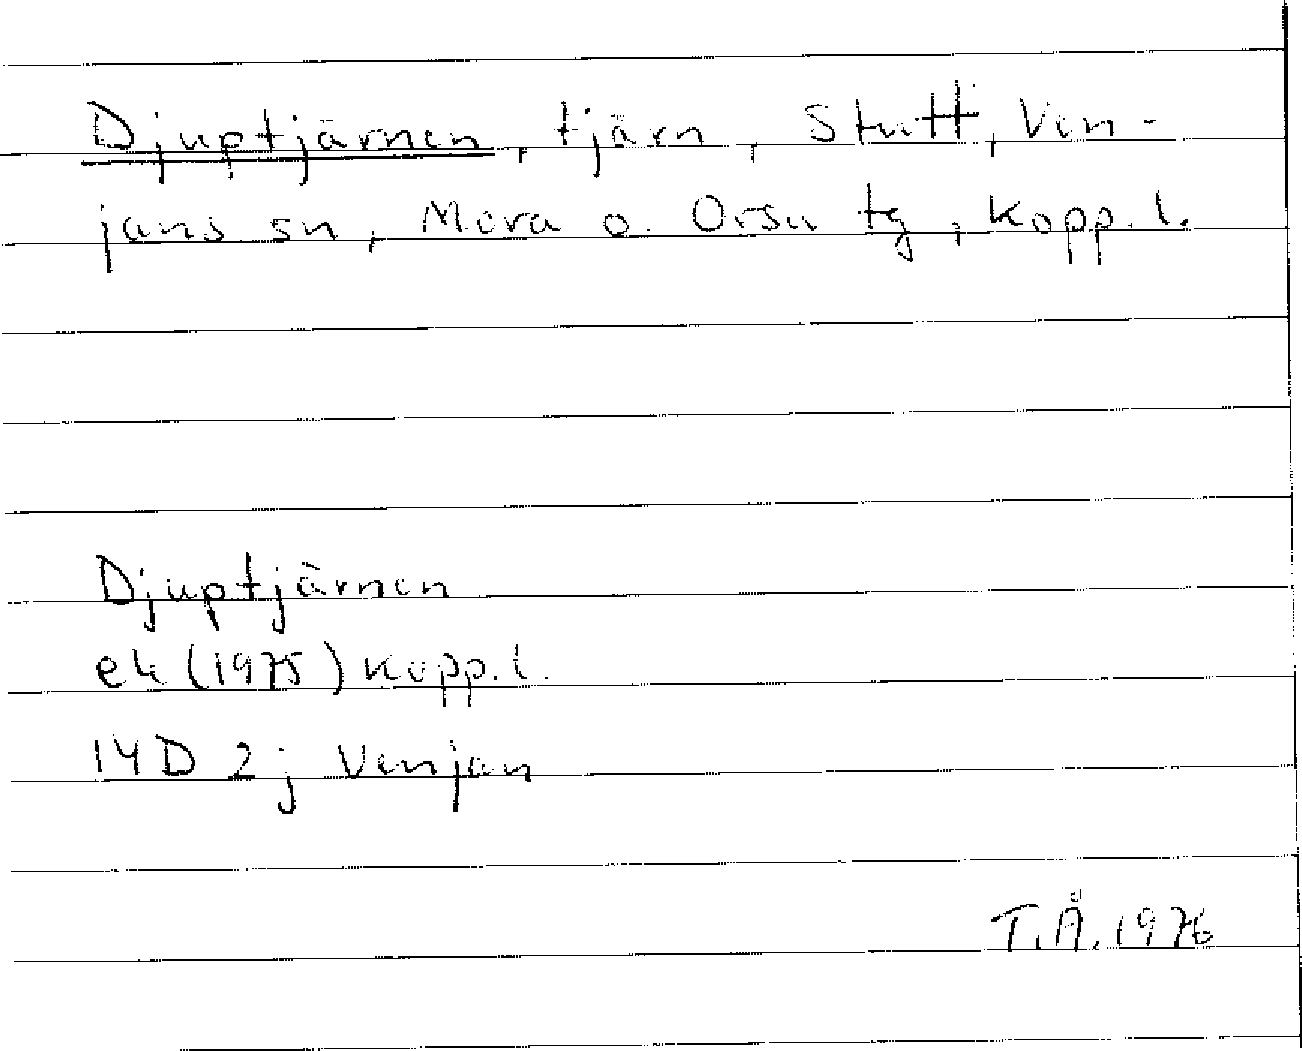 Djuptjärnen, tjärn, Stutt, Ven-
jans sn, Mora o. Orsa tg, Kopp. l.
Djuptjärnen
ek (1975) Kopp. l.
14D 2j Venjan
T.Å. 1976